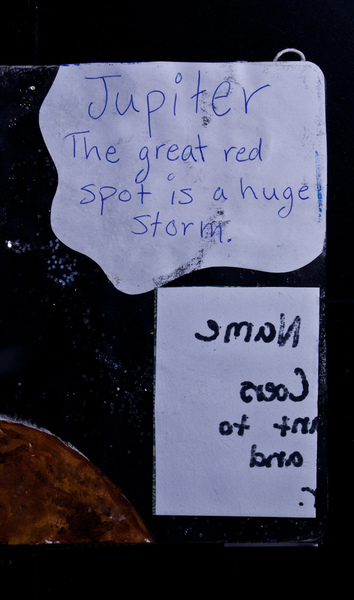 Jupiter
The great red
spot is a huge
storm.
Name
to
and